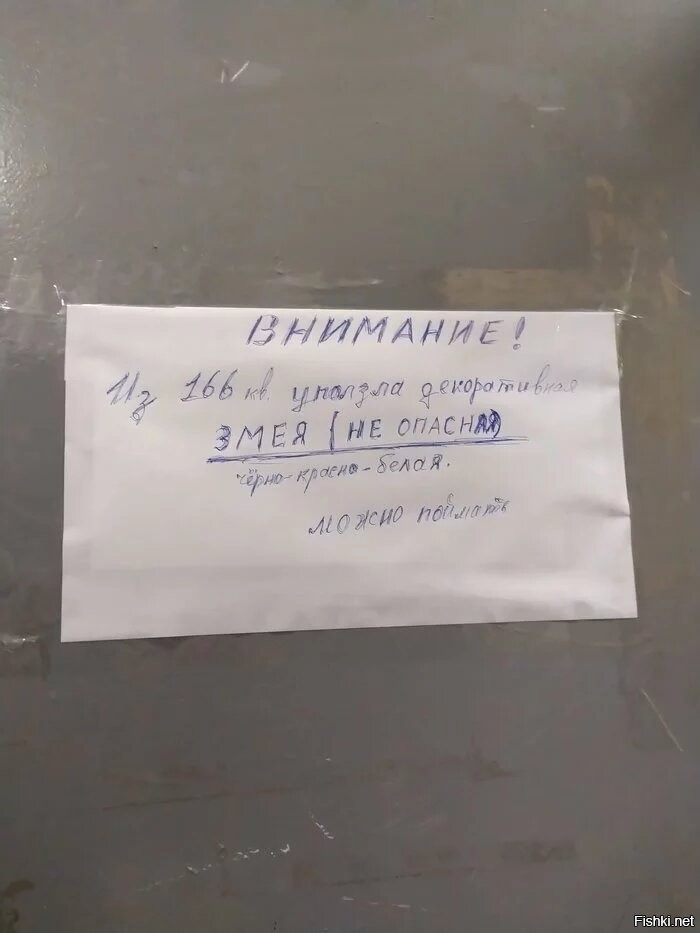 ВНИМАНИЕ!
Из 166 кв. уползла декоративная
ЗМЕЯ (НЕ ОПАСНАЯ)
чёрно-красно-белая.
можно поймать
Fishki.net